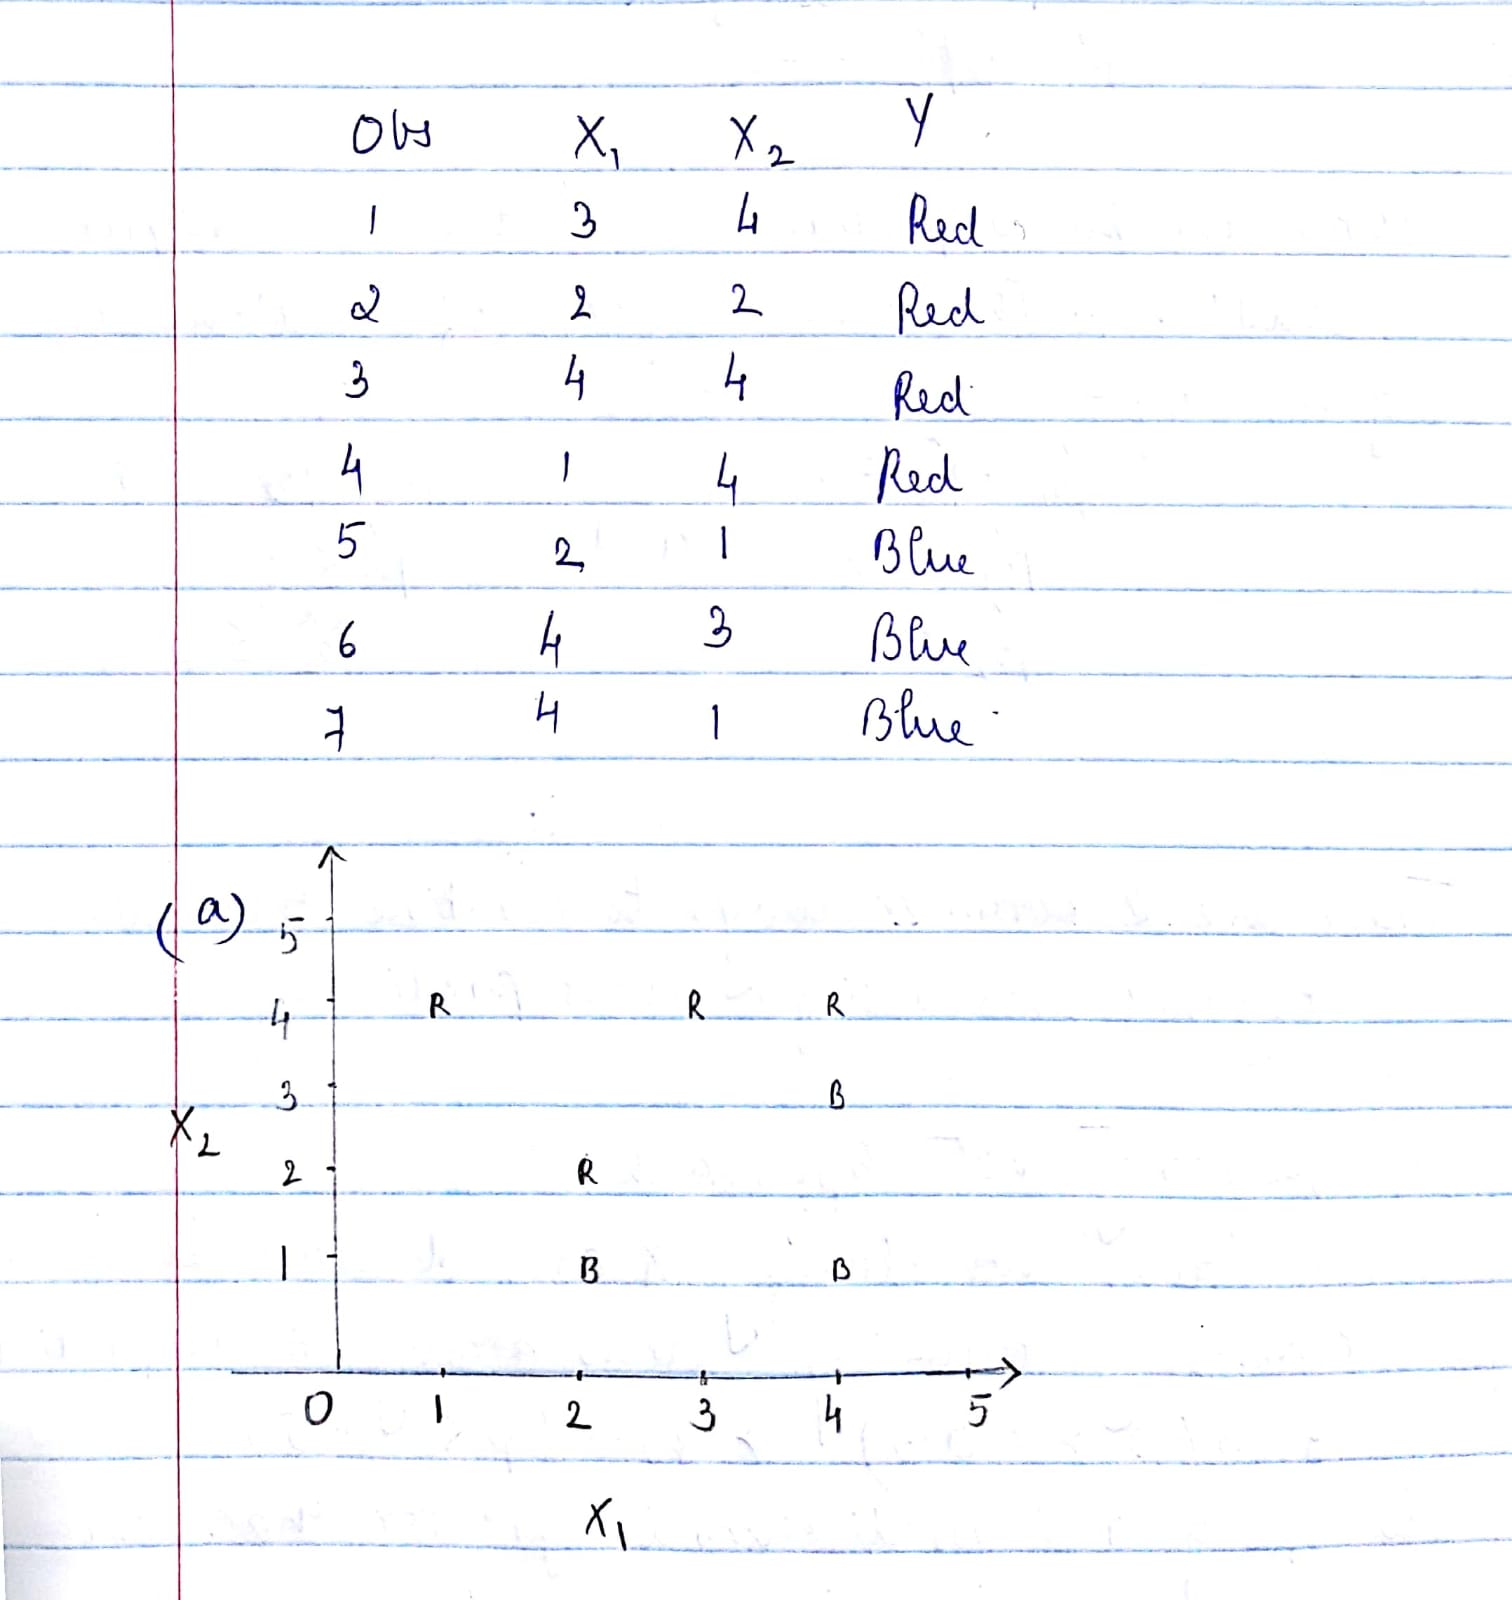 Obs X₁ X₂ Y
1 3 4 Red
2 2 2 Red
3 4 4 Red
4 1 4 Red
5 2 1 Blue
6 4 3 Blue
7 4 1 Blue
(a) 5
4 R R R
3 B
X₂
2 R
1 B B
0 1 2 3 4 5
X₁